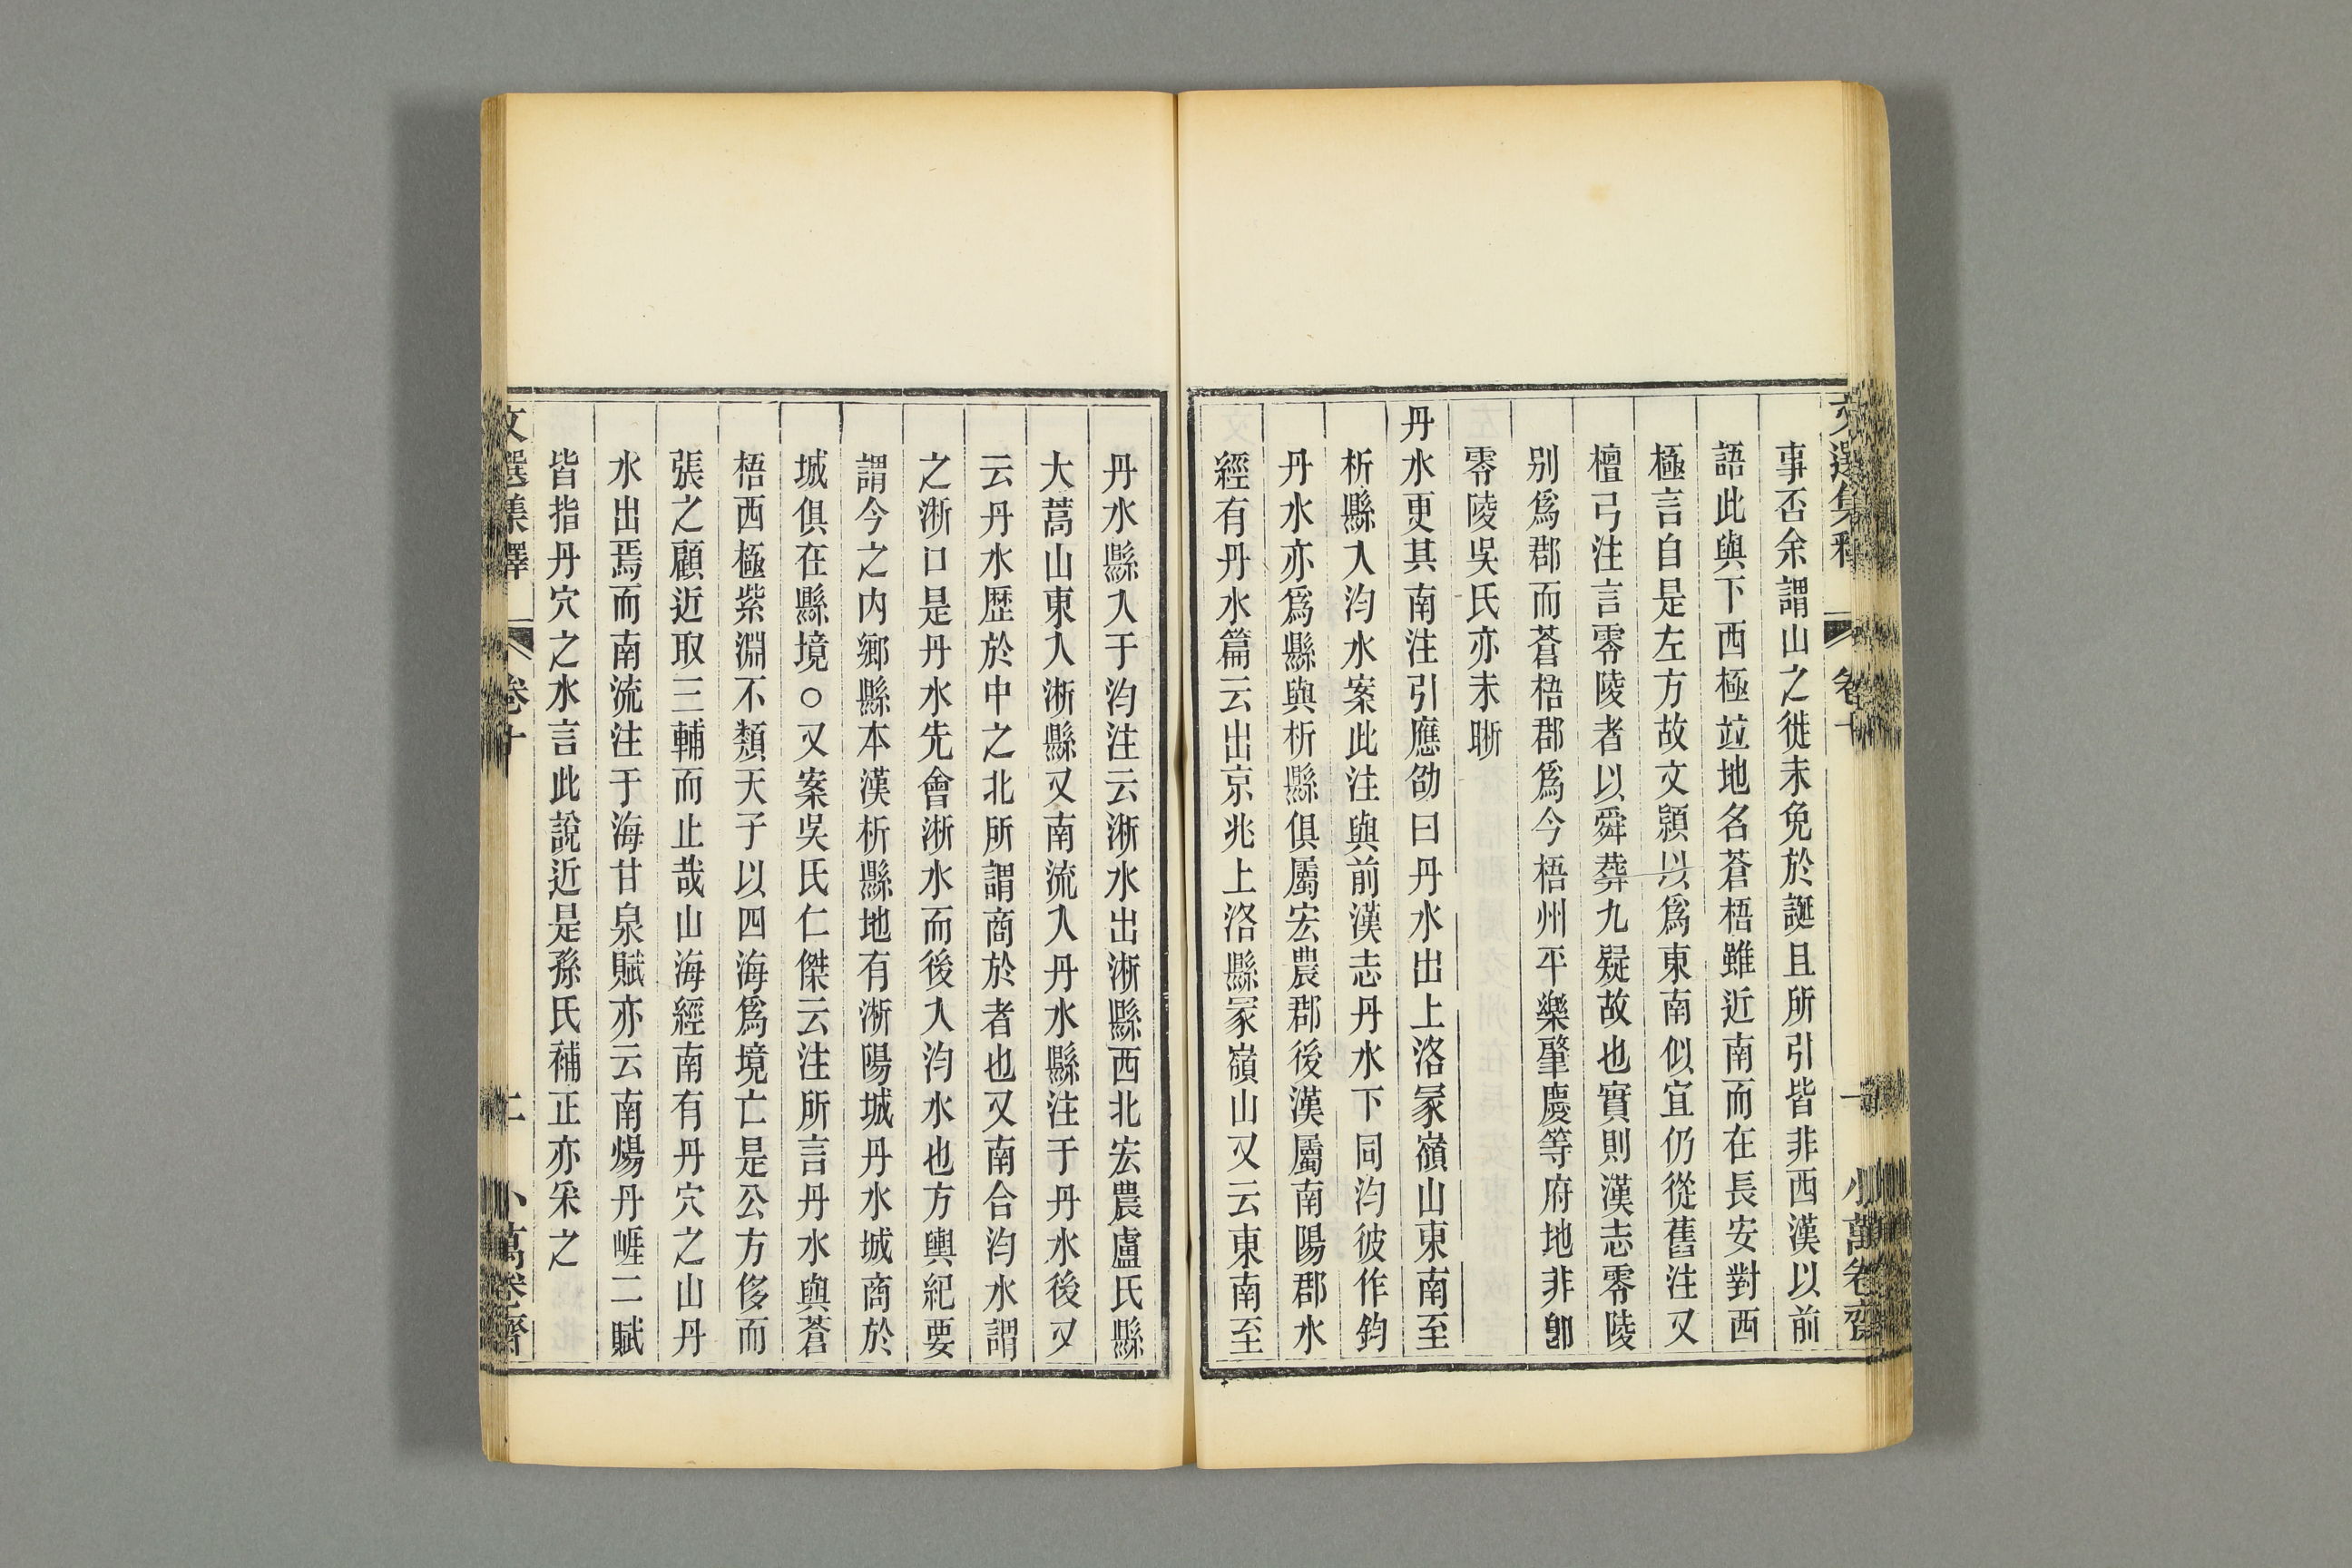 文選集釋 卷十 一 小萬卷齋
事否余謂山之徙未免於誕且所引皆非西漢以前
語此與下西極竝地名蒼梧雖近南而在長安對西
極言自是左方故文穎以爲東南似宜仍從舊注又
檀弓注言零陵者以舜葬九疑故也實則漢志零陵
别爲郡而蒼梧郡爲今梧州平樂肇慶等府地非卽
零陵吳氏亦未晣
丹水更其南注引應劭曰丹水出上洛冢嶺山東南至
析縣入汮水案此注與前漢志丹水下同汮彼作鈞
丹水亦爲縣與析縣俱屬宏農郡後漢屬南陽郡水
經有丹水篇云出京兆上洛縣冢嶺山又云東南至
丹水縣入于汮注云淅水出淅縣西北宏農盧氏縣
大蒿山東入淅縣又南流入丹水縣注于丹水後又
云丹水歷於中之北所謂商於者也又南合汮水謂
之淅口是丹水先會淅水而後入汮水也方輿紀要
謂今之内鄉縣本漢析縣地有淅陽城丹水城商於
城俱在縣境○又案吳氏仁傑云注所言丹水與蒼
梧西極紫淵不類天子以四海爲境亡是公方侈而
張之顧近取三輔而止哉山海經南有丹穴之山丹
水出焉而南流注于海甘泉賦亦云南煬丹崕二賦
皆指丹穴之水言此說近是孫氏補正亦采之
文選集釋 卷十 二 小萬卷齋